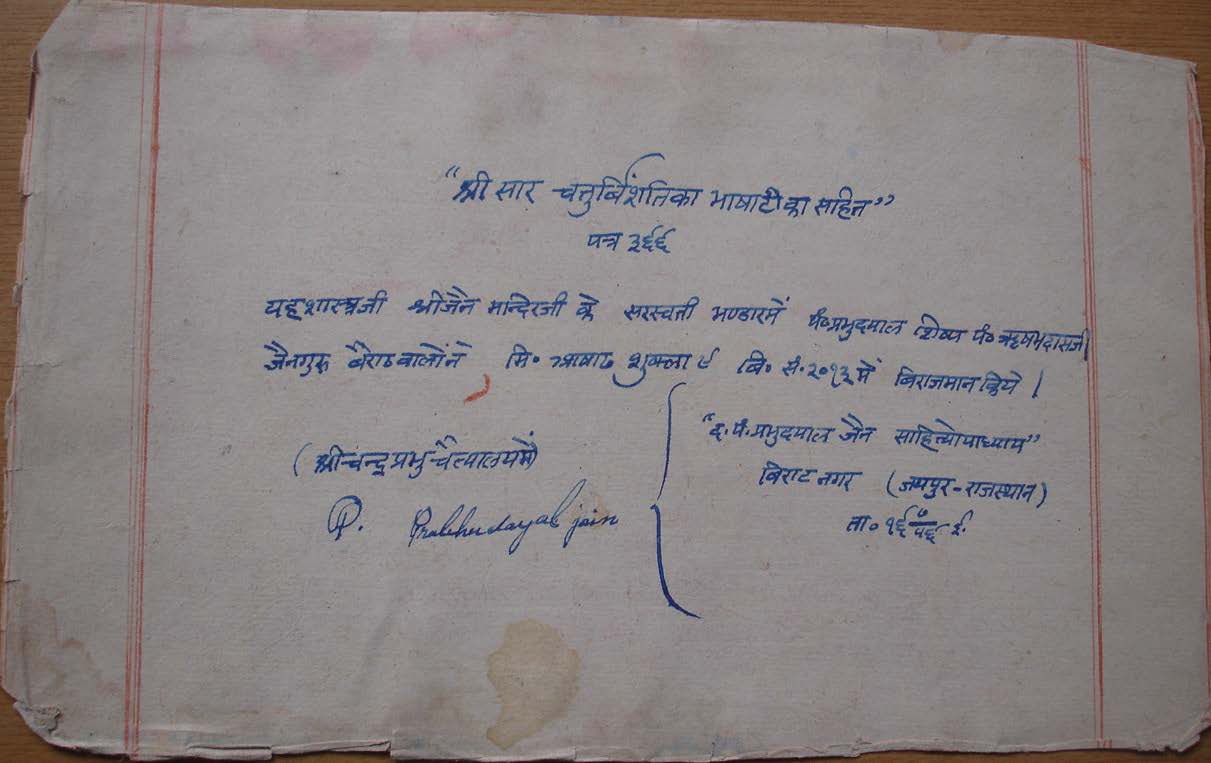 “श्री सार चतुर्बिंशतिका भाषाटीका सहित”
पत्र ३६६
यह शास्त्रजी श्रीजैन मन्दिरजी के सरस्वती भण्डारमें पं॰प्रभुदयाल शिष्य पं॰ ऋषभदासजी
जैनगुरु बैराठवालोंने मि॰ आषाढ शुक्ला ९ बि॰ सं॰ २०१३ में बिराजमान किये।
(श्रीचन्द्रप्रभु चैत्यालयमें)
P. Prabhudayal jain
“ह. पं. प्रभुदयाल जैन साहित्योपाध्याय”
बिराटनगर (जयपुर-राजस्थान)
ता॰ १६ ७/५६ ई.